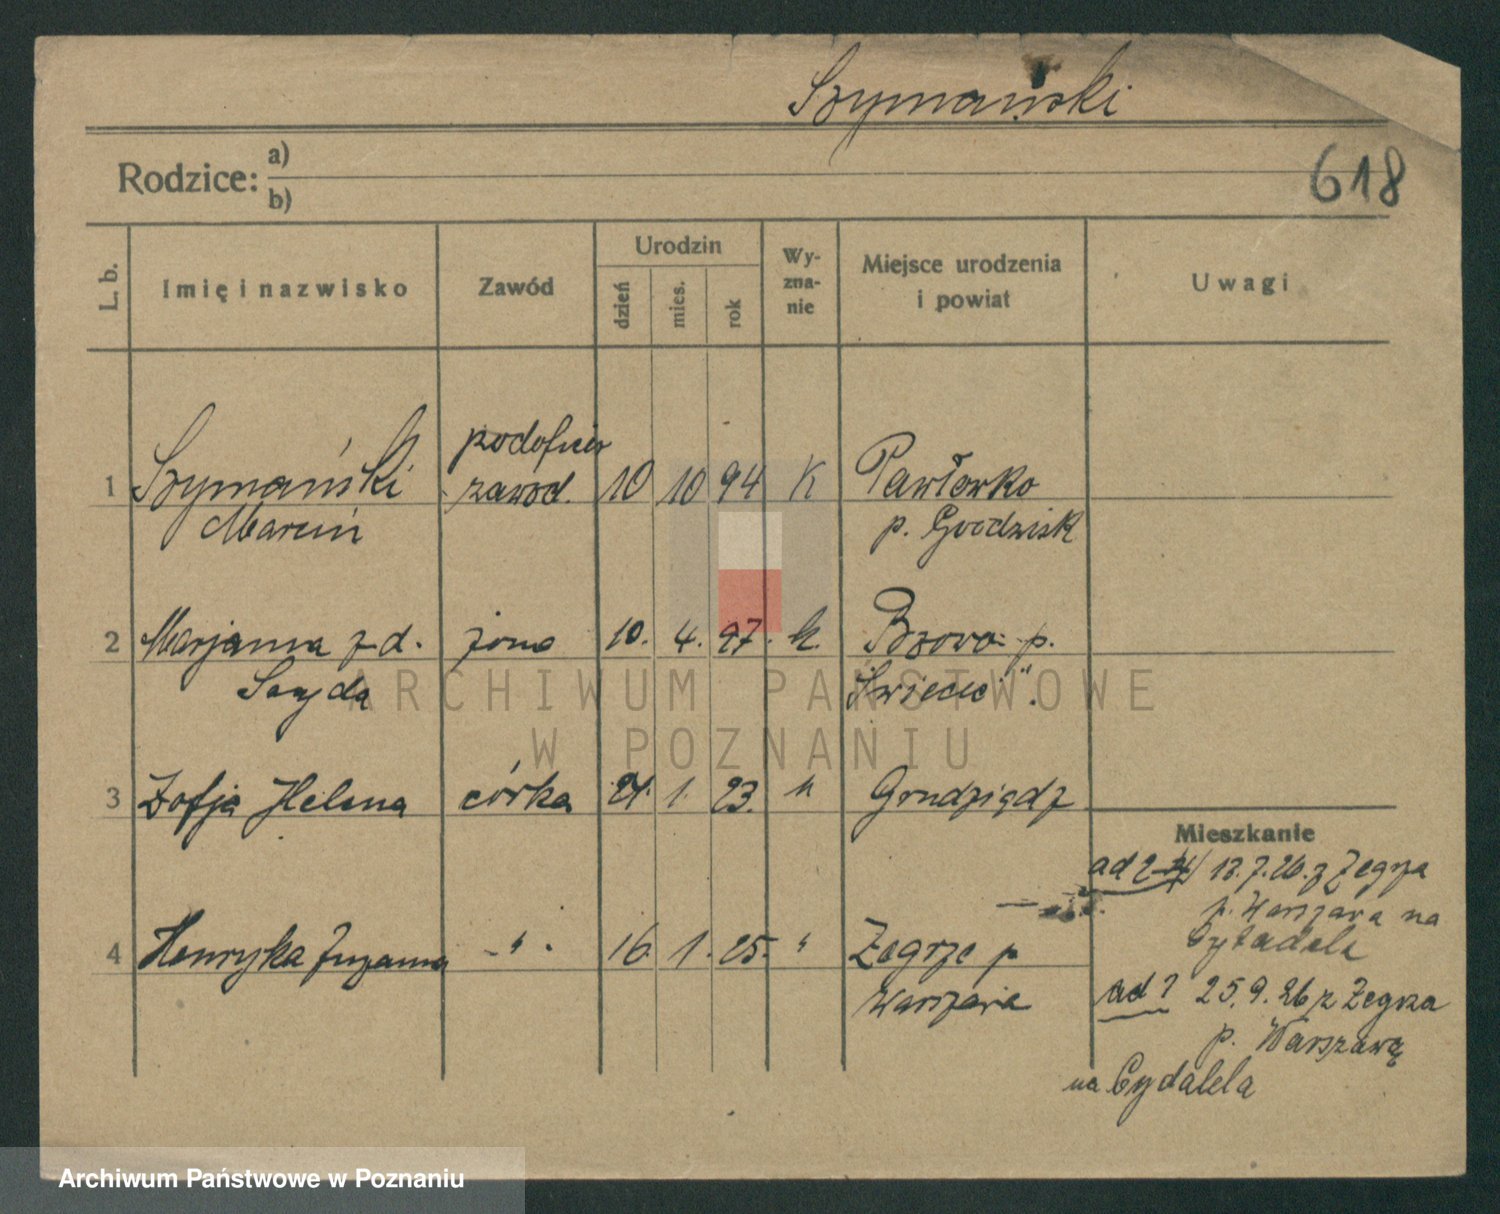 Szymański
618
Rodzice: a)
b)
L. b. Imię i nazwisko Zawód Urodzin dzień mies. rok Wyznanie Miejsce urodzenia i powiat Uwagi
podoficer
1 Szymański zawod. 10 10 94 K Pawłowko
Marcin p. Grodzisk
2 Marjanna z d. żona 10. 4. 97. k. Bzowo p.
Szajda Świecie".
3 Zofja Helena córka 21. 1. 23. " Grudziądz
Mieszkanie
ad 2-4/ 13.7.26. z Zegrza
p. Warszawa na
Cytadela
4 Henryka Zuzanna -"- 16. 1. 25. " Zegrze p
Warszawa
ad 1 25.9.26 z Zegrza
p. Warszawą
na Cydalela
ARCHIWUM PAŃSTWOWE
W POZNANIU
Archiwum Państwowe w Poznaniu